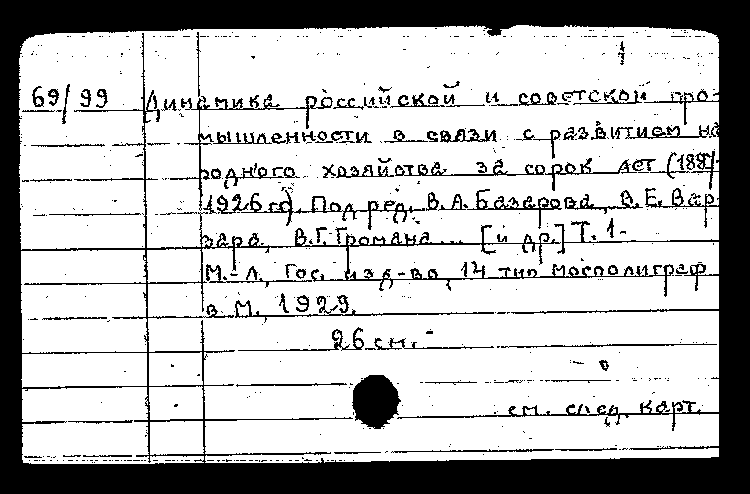 1
69/99 Динамика российской и советской про-
мышленности в связи с развитием на
родного хозяйства за сорок лет (1887-
1926 гг). Под ред. В.А.Базарова, В.Е.Вар-
зара, В.Г.Громана... [и др.] Т. 1-
М.-Л., Гос. изд-во, 14 тип. Мосполиграф
в М., 1929.
26 см. -
см. след. карт.